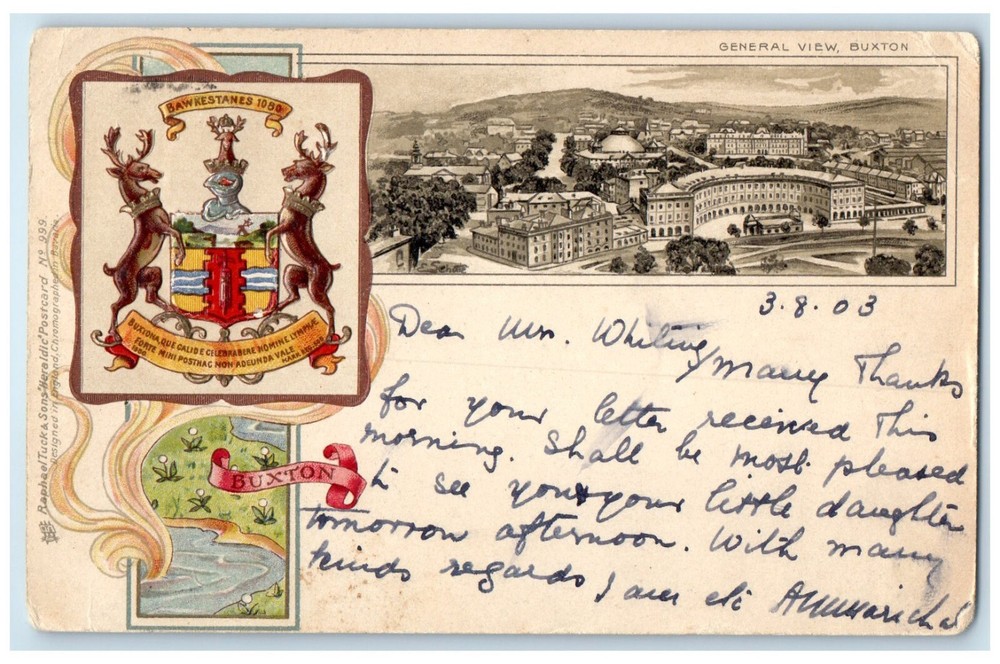 GENERAL VIEW, BUXTON
BAWKESTANES 1080
BUXTONA QUE CALIDÆ CELEBRABERE NOMINE LYMPHÆ
FORTE MIHI POSTHAC NON ADEUNDA VALE
BUXTON
Raphael Tuck & Sons "Heraldic" Postcard Nº 999.
Designed in England, Chromographed in
3.8.03
Dear Mrs. Whiting
Many Thanks
for your letter received this
morning. Shall be most pleased
to see you & your little daughter
tomorrow afternoon. With many
kinds regards I am etc